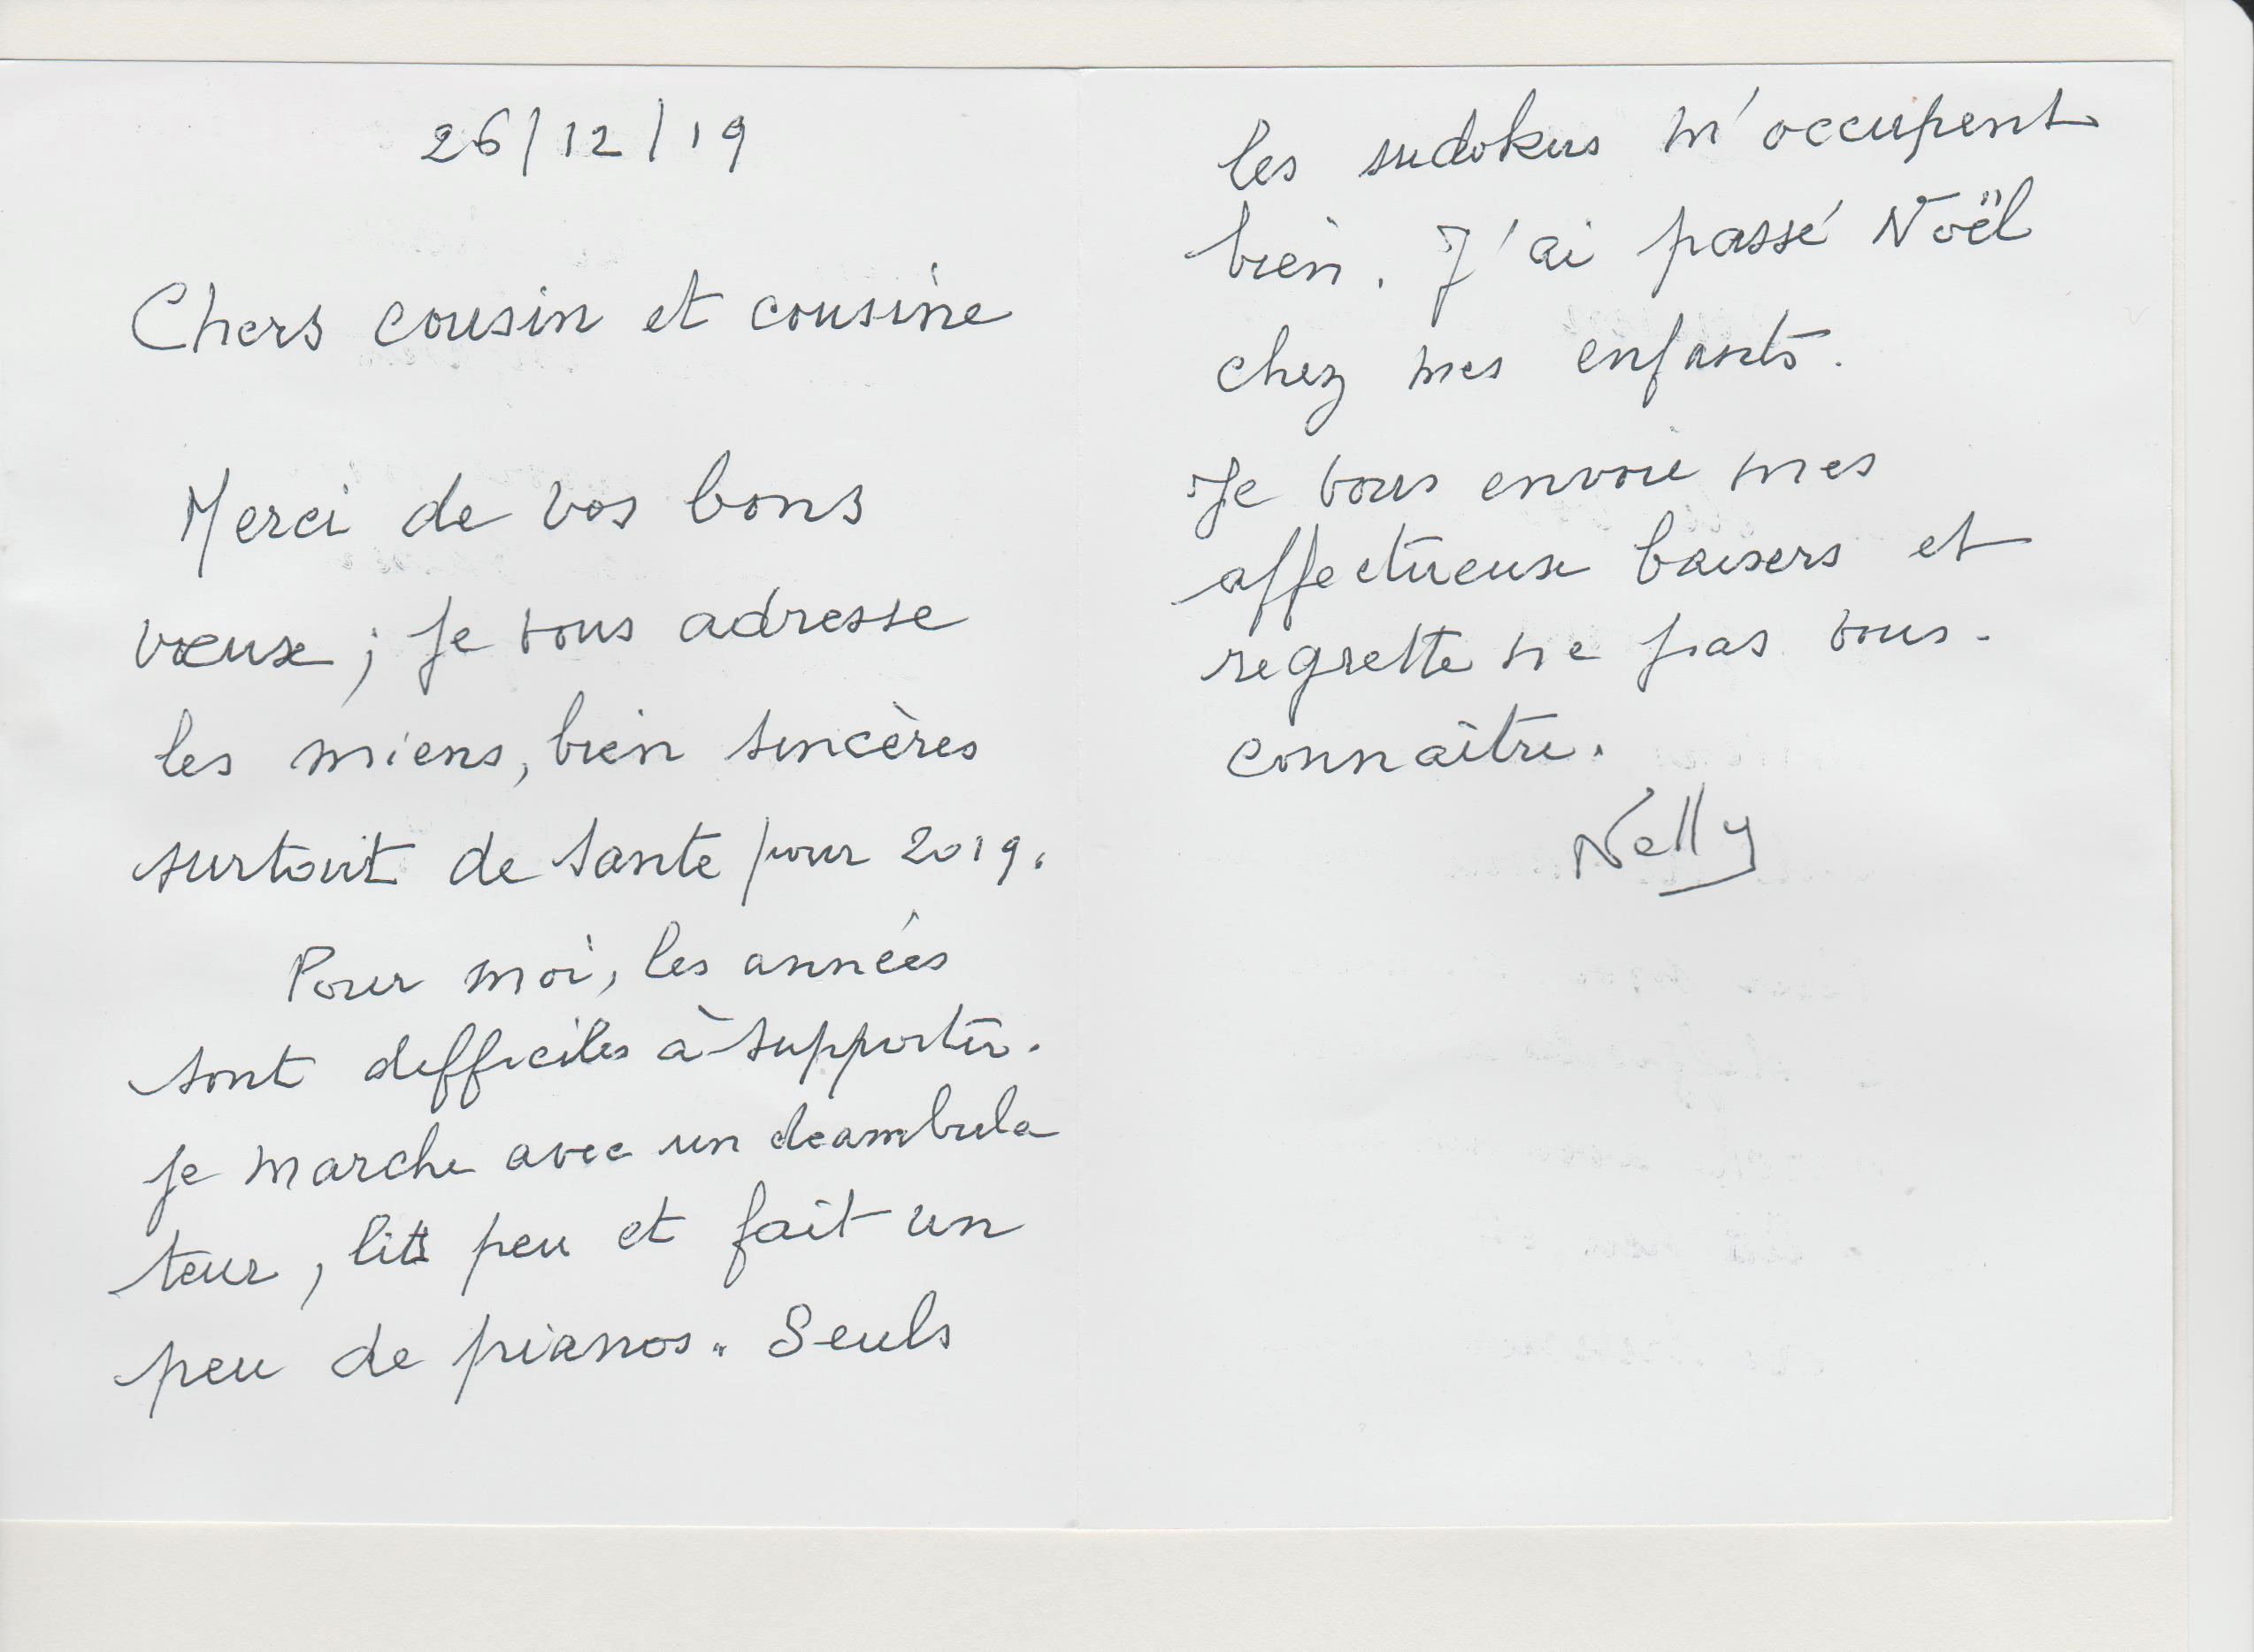 26/12/19
Chers cousin et cousine
Merci de vos bons
vœux ; je vous adresse
les miens, bien sincères
surtout de sante pour 2019.
Pour moi, les années
sont difficiles à supporter.
je marche avec un deambula
teur, lits peu et fait un
peu de pianos. Seuls
les sudokus m'occupent
bien. J'ai passé Noël
chez mes enfants.
Je vous envoie mes
affectueux baisers et
regrette ne pas vous.
connaître.
Nelly